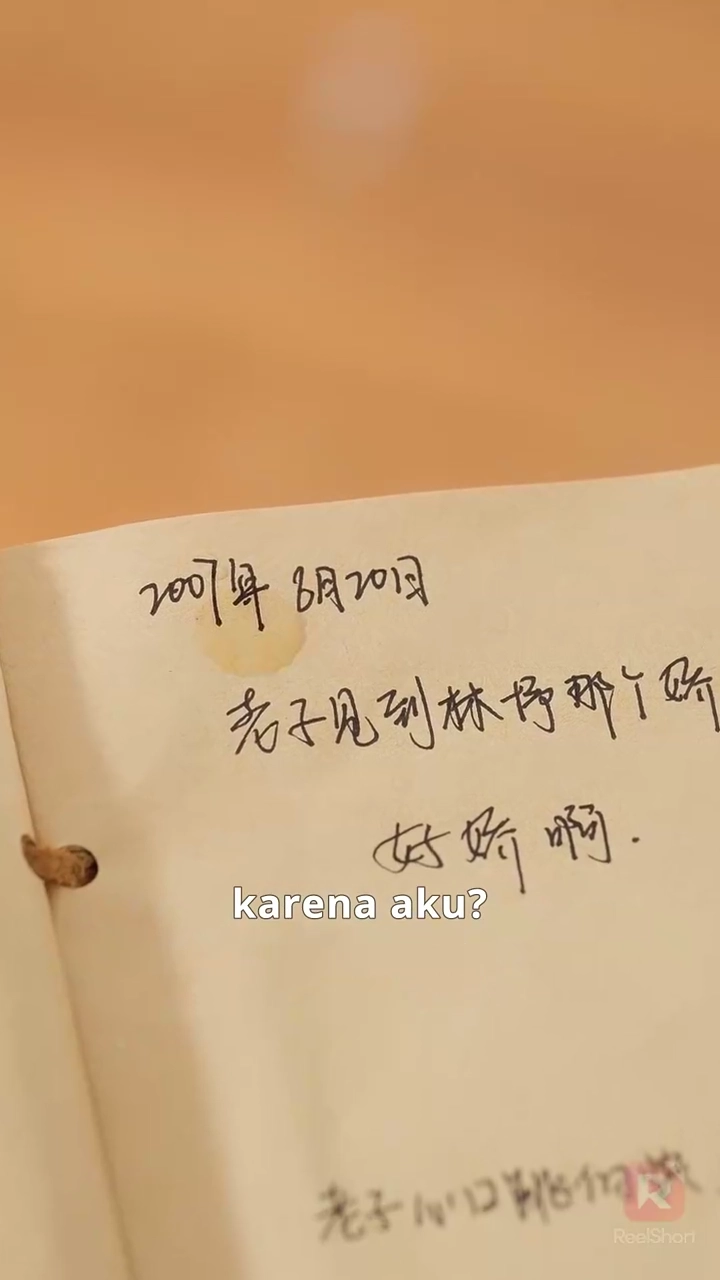 2007年 6月20日
老子见到林婷那个娇
好娇啊.
karena aku?
老子心口跳们
ReelShort